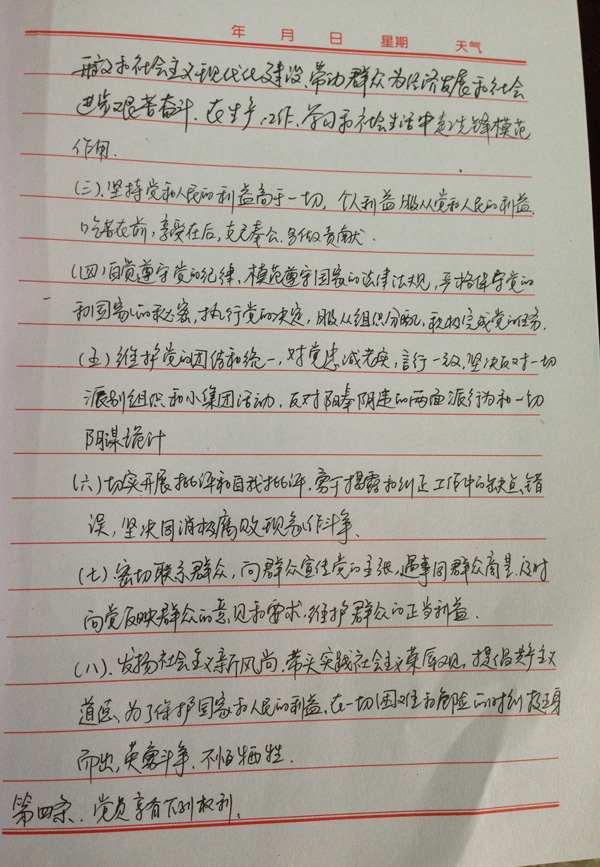 年 月 日 星期 天气
开放和社会主义现代化建设、带动群众为经济发展和社会
进步艰苦奋斗、在生产、工作、学习和社会生活中起先锋模范
作用.
(三)、坚持党和人民的利益高于一切,个人利益服从党和人民的利益,
吃苦在前,享受在后,克己奉公,多做贡献.
(四)自觉遵守党的纪律,模范遵守国家的法律法规,严格保守党的
和国家的秘密,执行党的决定,服从组织分配,积极完成党的任务.
(五)维护党的团结和统一,对党忠诚老实,言行一致,坚决反对一切
派别组织和小集团活动,反对阳奉阴违的两面派行为和一切
阴谋诡计
(六)切实开展批评和自我批评,勇于揭露和纠正工作中的缺点、错
误,坚决同消极腐败现象作斗争、
(七)密切联系群众,向群众宣传党的主张,遇事同群众商量,及时
向党反映群众的意见和要求,维护群众的正当利益.
(八)、发扬社会主义新风尚、带头实践社会主义荣辱观,提倡共产主义
道德、为了保护国家和人民的利益,在一切困难和危险的时刻挺身
而出,英勇斗争、不怕牺牲.
第四条、党员享有下列权利: